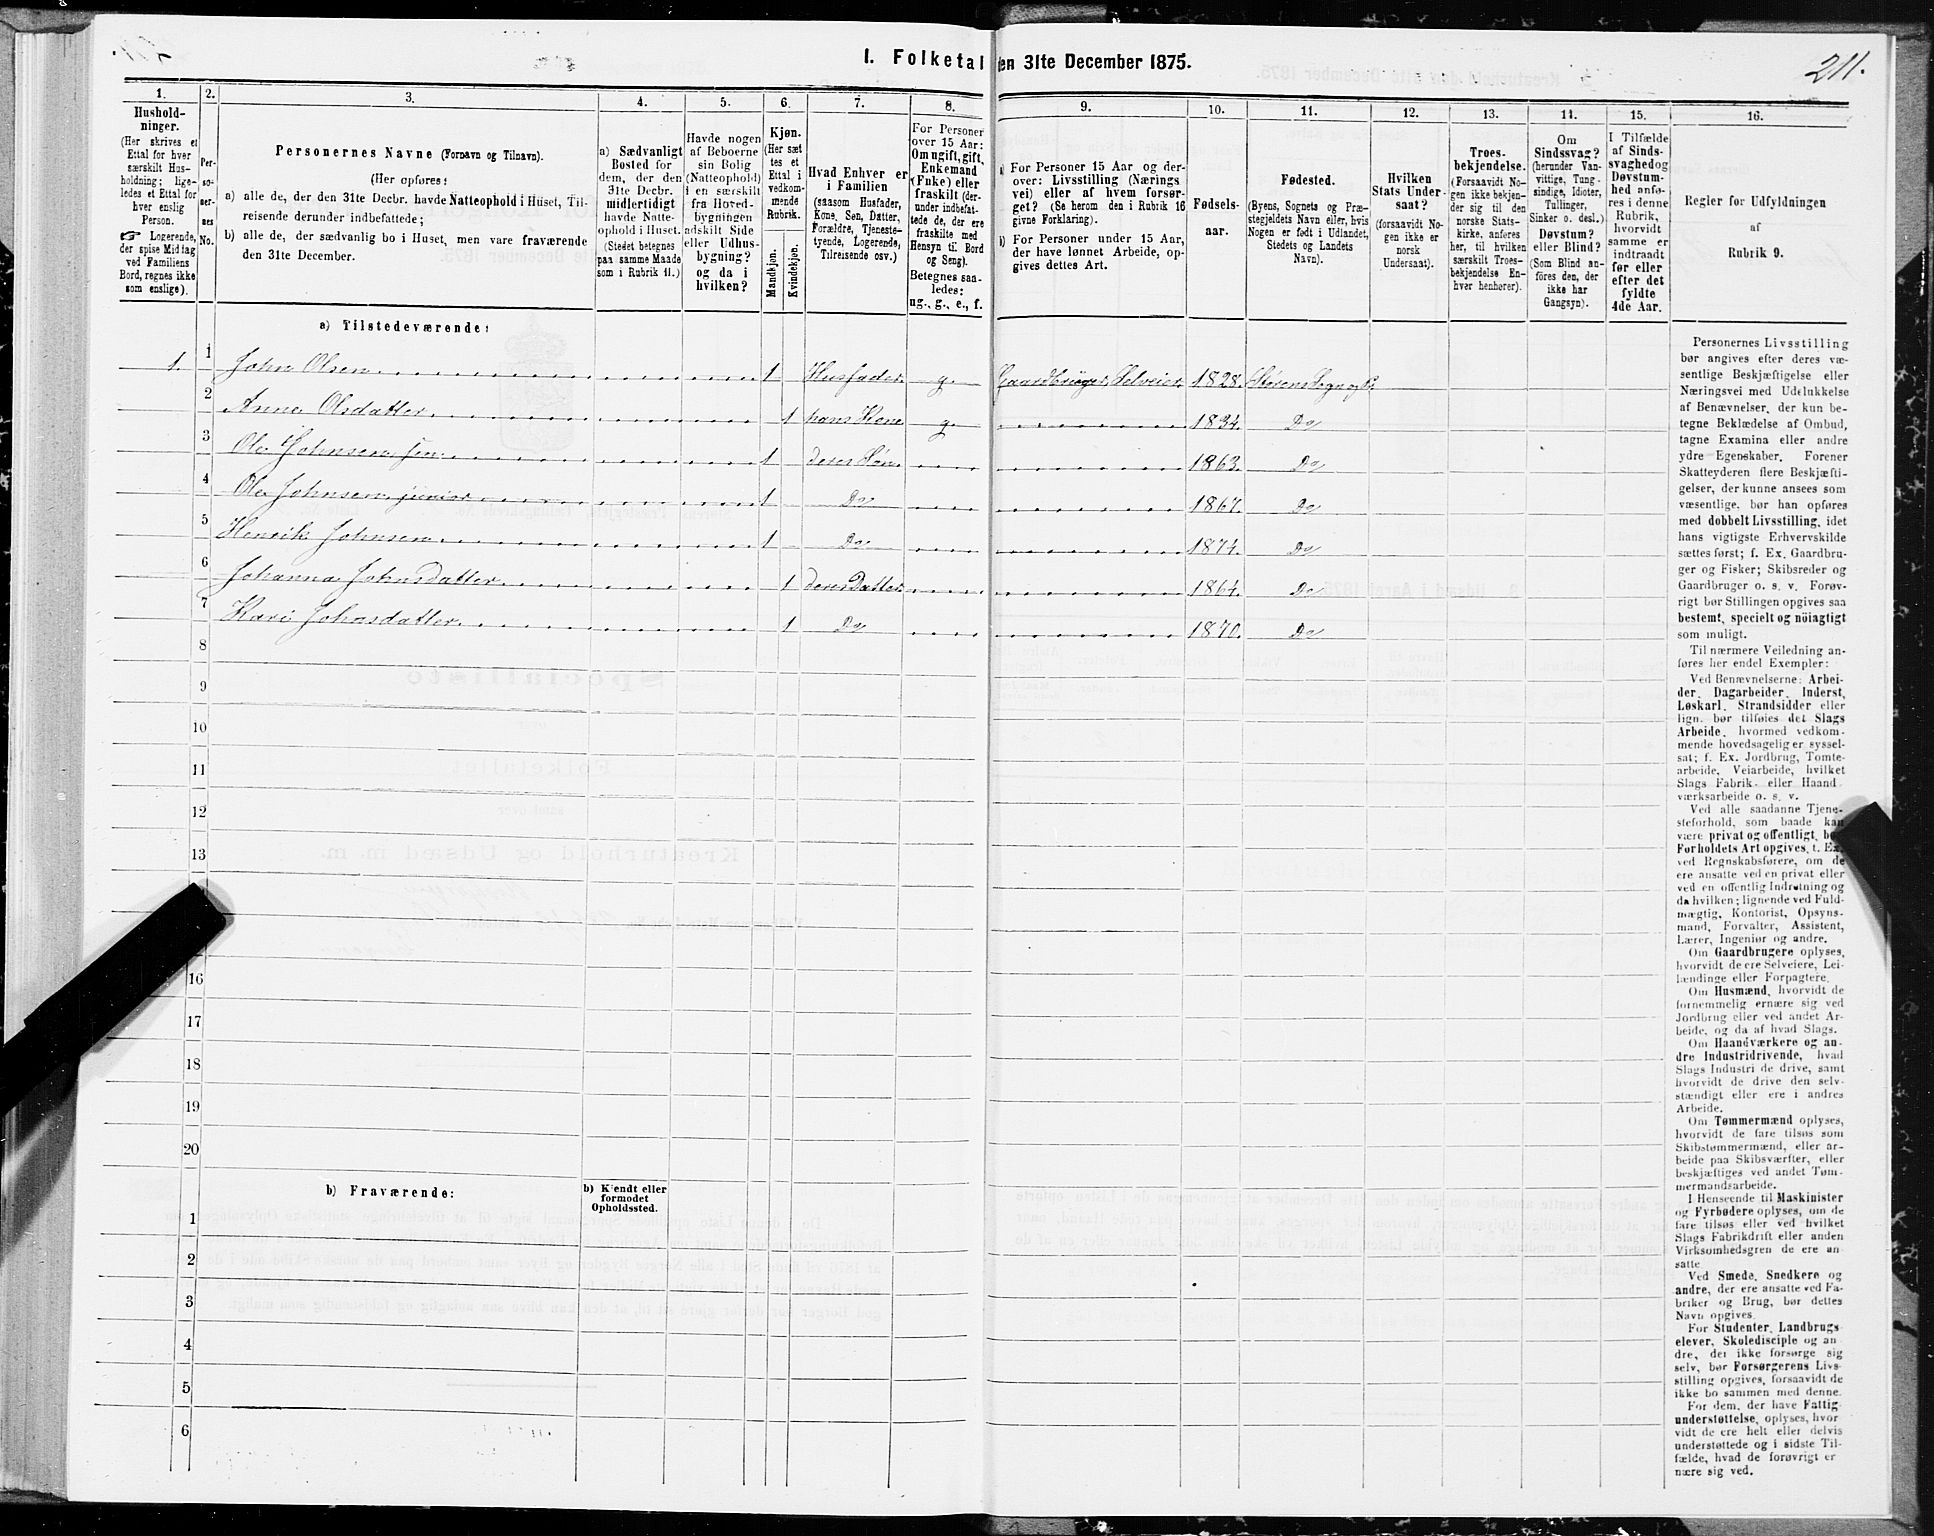 1. Folketal den 31te December 1875.
211.
1. 2. 3. 4. 5. 6. 7. 8. 9. 10. 11. 12. 13. 14. 15. 16.
Hushold-
ninger.
(Her skrives et
Ettal for hver
særskilt Hus-
holdning; lige-
ledes et Ettal for
hver enslig
Person.
☞ Logerende,
der spise Middag
ved Familiens
Bord, regnes ikke
som enslige).
Per-
so-
ner-
nes
No.
Personernes Navne (Fornavn og Tilnavn).
(Her opføres:
a) alle de, der den 31te Decbr. havde Natteophold i Huset, Til-
reisende derunder indbefattede;
b) alle de, der sædvanlig bo i Huset, men vare fraværende
den 31te December.
a) Sædvanligt
Bosted for
dem, der den
31te Decbr.
midlertidigt
havde Natte-
ophold i Huset.
(Stedet betegnes
paa samme Maade
som i Rubrik 11.)
Havde nogen
af Beboerne
sin Bolig
(Natteophold)
i en særskilt
fra Hoved-
bygningen
adskilt Side
eller Udhus-
bygning?
og da i
hvilken?
Kjøn.
(Her sæt
tes et
Ettal i
vedkom-
mende
Rubrik.
Mandkjøn.
Kvindekjøn.
Hvad Enhver er
i Familien
(saasom Husfader,
Kone, Søn, Datter,
Forældre, Tjeneste-
tyende, Logerende,
Tilreisende osv.)
For Personer
over 15 Aar:
Om ugift, gift,
Enkemand
(Enke) eller
fraskilt (der-
under indbefat-
tede de, der ere
fraskilte med
Hensyn til Bord
og Seng).
Betegnes saa-
ledes:
ug., g., e., f.
a) For Personer 15 Aar og der-
over: Livsstilling (Nærings
vei) eller af hvem forsør-
get? (Se herom den i Rubrik 16
givne Forklaring).
b) For Personer under 15 Aar,
der have lønnet Arbeide, op-
gives dettes Art.
Fødsels-
aar.
Fødested.
(Byens, Sognets og Præ-
stegjeldets Navn eller, hvis
Nogen er født i Udlandet,
Stedets og Landets
Navn).
Hvilken
Stats Under-
saat?
(forsaavidt No-
gen ikke er
norsk
Undersaat).
Troes-
bekjendelse.
(Forsaavidt No-
gen ikke bekjen-
der sig til den
norske Stats-
kirke, anføres
her, til hvilken
særskilt Troes-
bekjendelse En-
hver henhører).
Om
Sindssvag?
(herunder Van-
vittige, Tung-
sindige, Idioter,
Tullinger,
Sinker o. desl.)
Døvstum?
eller Blind?
(Som Blind an-
føres den, der
ikke har
Gangsyn).
I Tilfælde
af Sinds-
svaghed og
Døvstum-
hed anfø-
res i denne
Rubrik,
hvorvidt
samme er
indtraadt
før eller
efter det
fyldte
4de Aar.
Regler for Udfyldningen
af
Rubrik 9.
a) Tilstedeværende:
1. 1 John Olsen 1 Husfader g. Gaardbruger Selveier 1828.
2 Anne Olsdatter 1 hans Kone g. 1834. Do
3 Ole Johnsen sen. 1 deres Søn 1863. Do
4 Ole Johnsen junior 1 Do 1867. Do
5 Henrik Johnsen 1 Do 1874. Do
6 Johanna Johnsdatter 1 deres Datter 1864. Do
7 Kari Johnsdatter 1 Do 1870. Do
8
9
10
11
12
13
16
17
18
19
20
b) Fraværende:
b) Kjendt eller
formodet
Opholdssted.
1
2
3
4
5
6
Personernes Livsstilling
bør angives efter deres væ-
sentlige Beskjæftigelse eller
Næringsvei med Udelukkelse
af Benævnelser, der kun be-
tegne Beklædelse af Ombud,
tagne Examina eller andre
ydre Egenskaber. Forener
Skatteyderen flere Beskjæfti-
gelser, der kunne ansees som
væsentlige, bør han opføres
med dobbelt Livsstilling, idet
hans vigtigste Erhvervskilde
sættes først; f. Ex. Gaardbru-
ger og Fisker; Skibsreder og
Gaardbruger o. s. v. Forøv-
rigt bør Stillingen opgives saa
bestemt, specielt og nöiagtigt
som muligt.
Til nærmere Veiledning an-
føres her endel Exempler:
Ved Benævnelserne: Arbei-
der, Dagarbeider, Inderst,
Løskarl, Strandsidder eller
lign. bør tilføies det Slags
Arbeide, hvormed vedkom-
mende hovedsagelig er syssel-
sat; f. Ex. Jordbrug, Tomte-
arbeide, Veiarbeide, hvilket
Slags Fabrik- eller Haand
værksarbeide o. s. v.
Ved alle saadanne Tjene-
steforhold, som baade kan
være privat og offentligt, bør
Forholdets Art opgives, f. Ex.
ved Regnskabsførere, om de
ere ansatte ved en privat eller
ved en offentlig Indretning og
da hvilken; lignende ved Fuld-
mægtig, Kontorist, Opsyns-
mand, Forvalter, Assistent,
Lærer, Ingeniør og andre.
Om Gaardbrugere oplyses,
hvorvidt de ere Selveiere, Lei-
lændinge eller Forpagtere.
Om Husmænd, hvorvidt de
fornemmelig ernære sig ved
Jordbrug eller ved andet Ar-
beide, og da af hvad Slags.
Om Haandværkere og an-
dre Industridrivende, hvad
Slags Industri de drive, samt
hvorvidt de drive den selv-
stændigt eller ere i andres
Arbeide.
Om Tømmermænd oplyses,
hvorvidt de fare tilsøs som
Skibstømmermænd, eller ar-
beide paa Skibsværfter, eller
beskjæftiges ved andet Tøm-
mermandsarbeide.
I Henseende til Maskinister
og Fyrbødere oplyses, om de
fare tilsøs eller ved hvilket
Slags Fabrikdrift eller anden
Virksomhedsgren de ere an-
satte
Ved Smede, Snedkere og
andre, der ere ansatte ved Fa-
briker og Brug, bør dettes
Navn opgives.
For Studenter, Landbrugs
elever, Skoledisciple og an
dre, der ikke forsørge sig
selv, bør Forsørgerens Livs-
stilling opgives, forsaavidt de
ikke bo sammen med denne.
For dem, der have Fattig
understøttelse, oplyses, hvor
vidt de ere helt eller delvis
understøttede og i sidste Til-
fælde, hvad de forøvrigt er
nære sig ved.